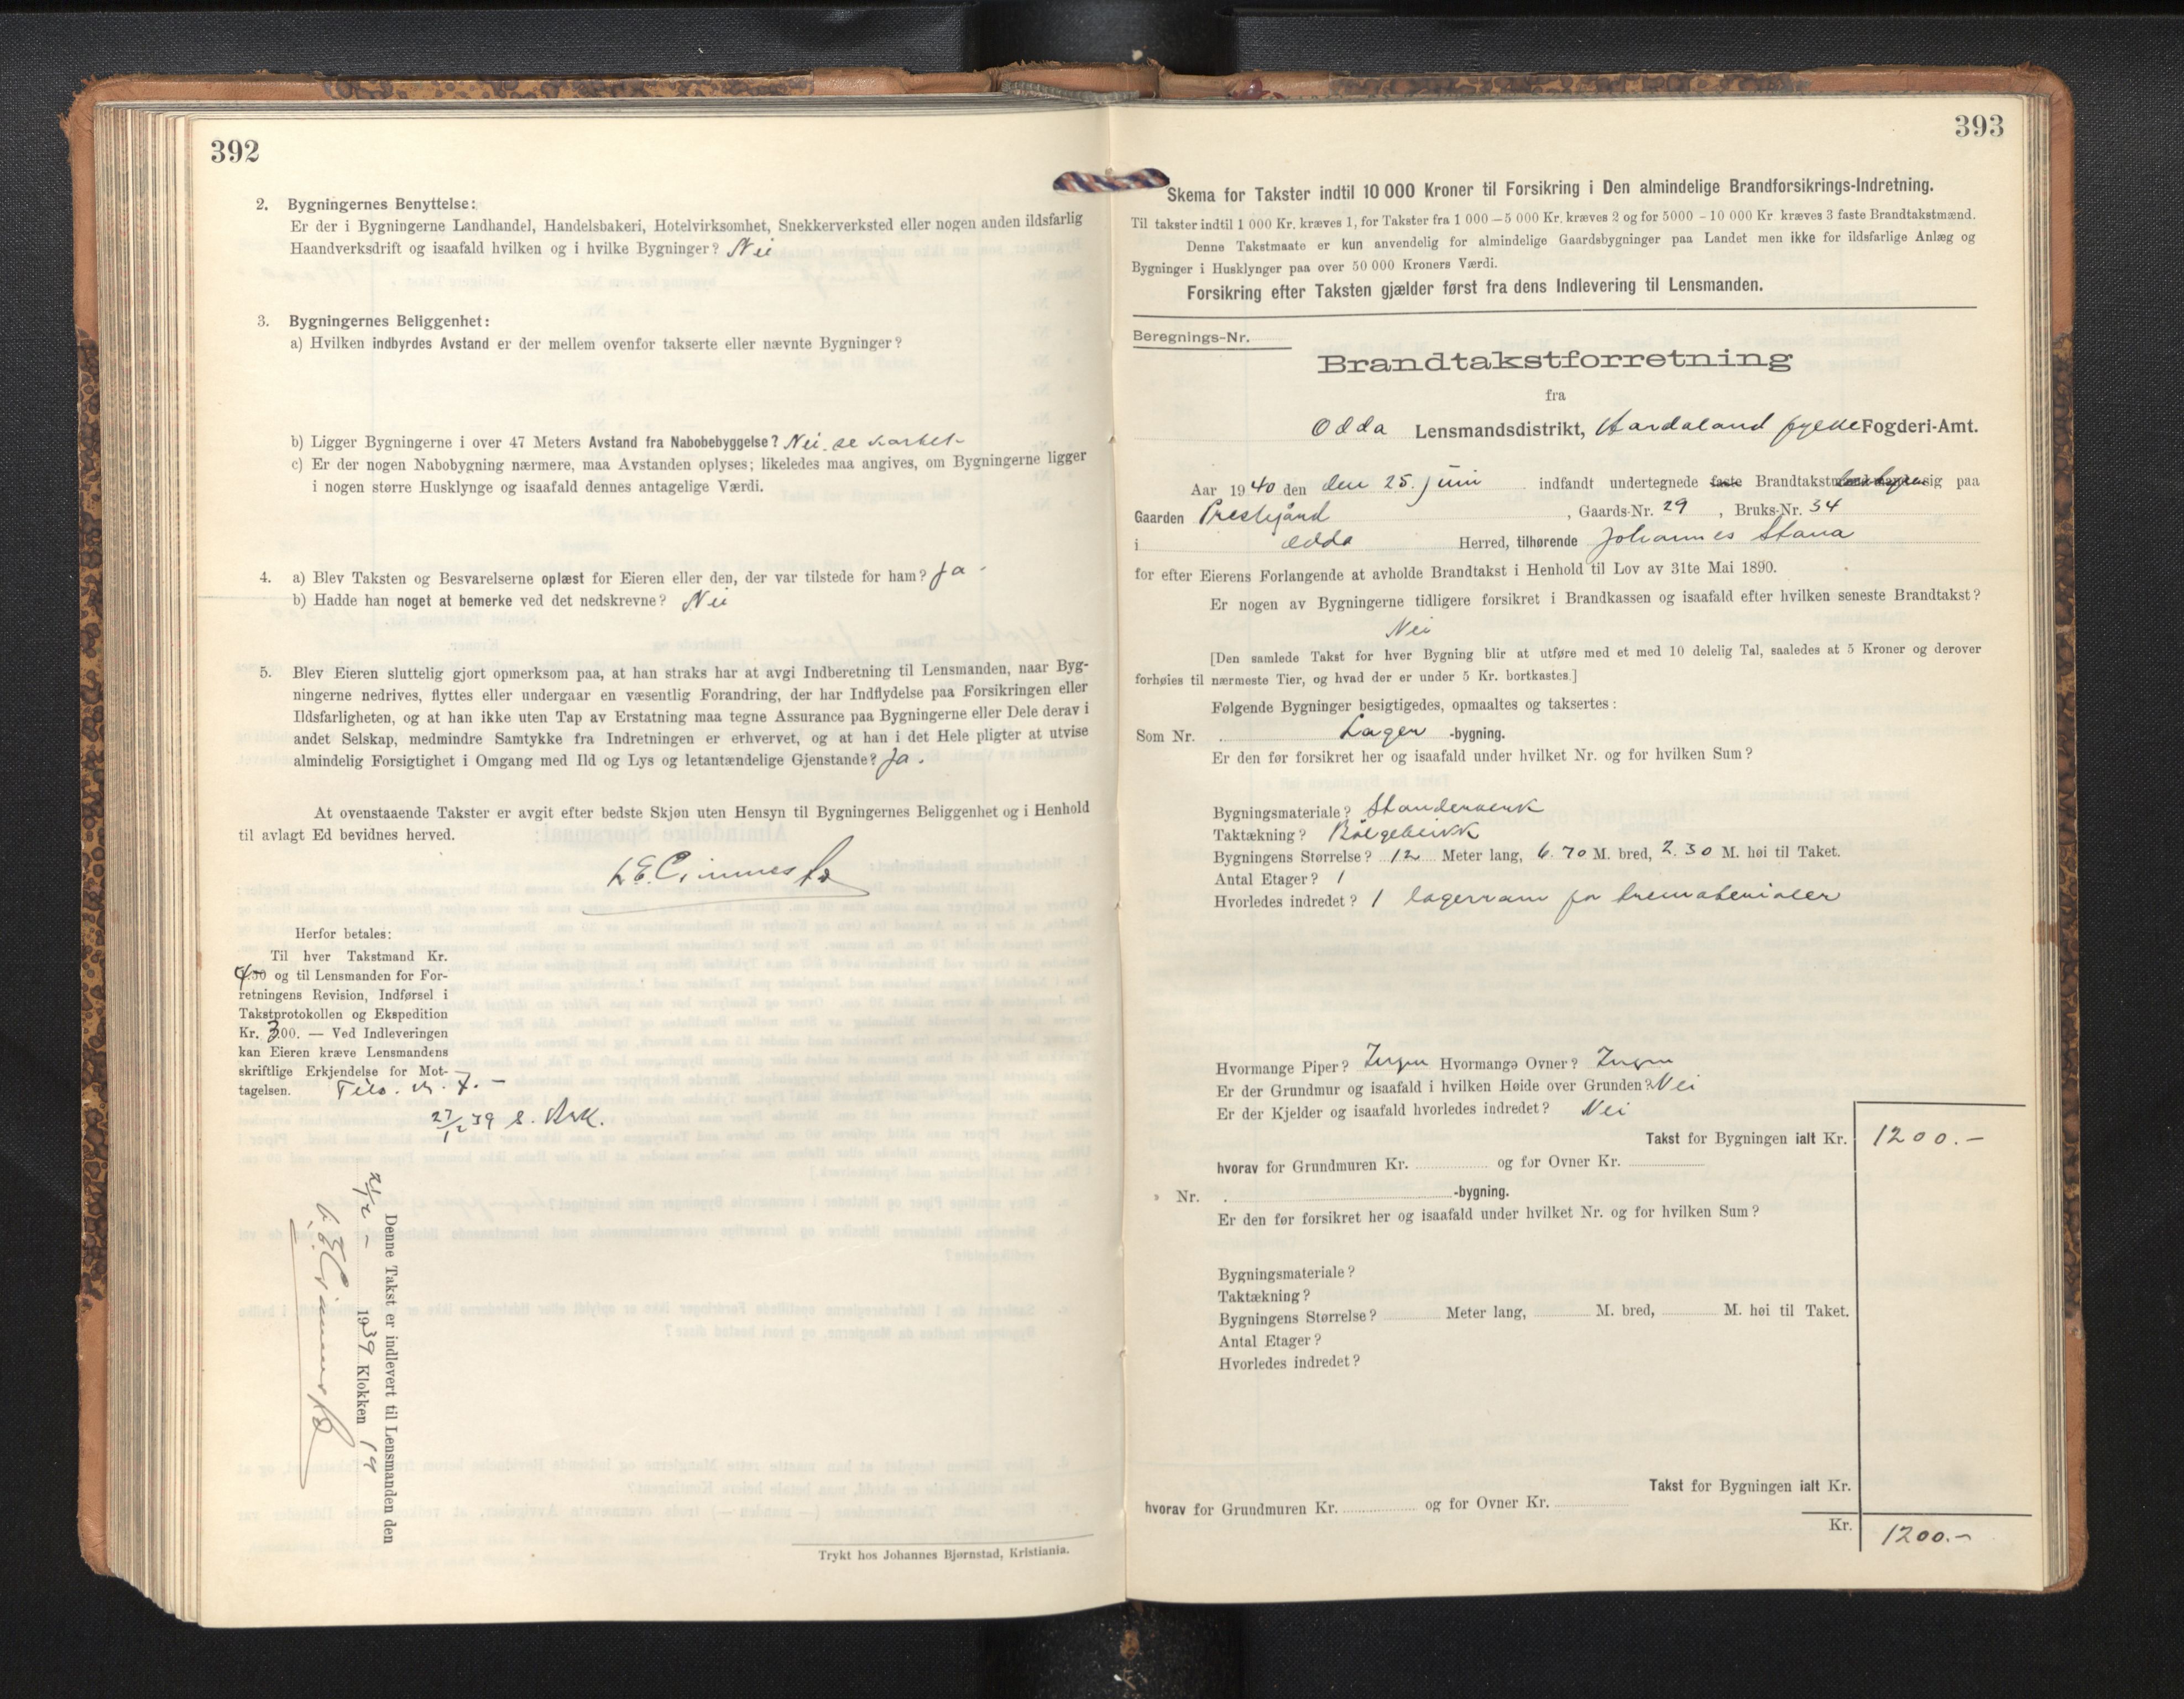 392
2. Bygningernes Benyttelse:
Er der i Bygningerne Landhandel, Handelsbakeri, Hotelvirksomhet, Snekkerverksted eller nogen anden ildsfarlig
Haandverksdrift og isaafald hvilken og i hvilke Bygninger? Nei
3. Bygningernes Beliggenhet:
a) Hvilken indbyrdes Avstand er der mellem ovenfor takserte eller nævnte Bygninger?
b) Ligger Bygningerne i over 47 Meters Avstand fra Nabobebyggelse? Nei. se kartet
c) Er der nogen Nabobygning nærmere, maa Avstanden oplyses; likeledes maa angives, om Bygningerne ligger
i nogen større Husklynge og isaafald dennes antagelige Værdi.
4. a) Blev Taksten og Besvarelserne oplæst for Eieren eller den, der var tilstede for ham? Ja -
b) Hadde han noget at bemerke ved det nedskrevne? Nei
5. Blev Eieren sluttelig gjort opmerksom paa, at han straks har at avgi Indberetning til Lensmanden, naar Byg-
ningerne nedrives, flyttes eller undergaar en væsentlig Forandring, der har Indflydelse paa Forsikringen eller
Ildsfarligheten, og at han ikke uten Tap av Erstatning maa tegne Assurance paa Bygningerne eller Dele derav i
andet Selskap, medmindre Samtykke fra Indretningen er erhvervet, og at han i det Hele pligter at utvise
almindelig Forsigtighet i Omgang med Ild og Lys og letantændelige Gjenstande? Ja.
At ovenstaaende Takster er avgit efter bedste Skjøn uten Hensyn til Bygningernes Beliggenhet og i Henhold
til avlagt Ed bevidnes herved.
Herfor betales:
Til hver Takstmand Kr.
4.50 og til Lensmanden for For-
retningens Revision, Indførsel i
Takstprotokollen og Ekspedition
Kr. 3.00. — Ved Indleveringen
kan Eieren kræve Lensmandens
skriftlige Erkjendelse for Mot-
tagelsen. 7.-
27/12 39
Denne Takst er indlevert til Lensmanden den
21/12 - 1939 Klokken 19
Trykt hos Johannes Bjørnstad, Kristiania.
393
Skema for Takster indtil 10 000 Kroner til Forsikring i Den almindelige Brandforsikrings-Indretning.
Til takster indtil 1 000 Kr. kræves 1, for Takster fra 1 000 – 5 000 Kr. kræves 2 og for 5000 – 10 000 Kr kræves 3 faste Brandtakstmænd.
Denne Takstmaate er kun anvendelig for almindelige Gaardsbygninger paa Landet men ikke for ildsfarlige Anlæg og
Bygninger i Husklynger paa over 50 000 Kroners Værdi.
Forsikring efter Taksten gjælder først fra dens Indlevering til Lensmanden.
Beregnings-Nr.
Brandtakstforretning
fra
Odda Lensmandsdistrikt, Hordaland fylke Fogderi-Amt.
Aar 1940 den den 25. juni indfandt undertegnede faste Brandtakst sig paa
Gaarden Prestegård, Gaards-Nr. 29, Bruks-Nr. 34
i Odda Herred, tilhørende Johannes Stana
for efter Eierens Forlangende at avholde Brandtakst i Henhold til Lov av 31te Mai 1890.
Er nogen av Bygningerne tidligere forsikret i Brandkassen og isaafald efter hvilken seneste Brandtakst?
Nei
[Den samlede Takst for hver Bygning blir at utføre med et med 10 delelig Tal, saaledes at 5 Kroner og derover
forhøies til nærmeste Tier, og hvad der er under 5 Kr. bortkastes.]
Følgende Bygninger besigtigedes, opmaaltes og taksertes:
Som Nr. . Lager -bygning.
Er den før forsikret her og isaafald under hvilket Nr. og for hvilken Sum?
Bygningsmateriale? Standerverk
Taktækning? Bølgeblikk
Bygningens Størrelse? 12 Meter lang, 6.70 M. bred, 2.30 M. høi til Taket.
Antal Etager? 1
Hvorledes indredet? 1 lagerrum for trematerialer
Hvormange Piper? Ingen Hvormange Ovner? Ingen
Er der Grundmur og isaafald i hvilken Høide over Grunden? Nei
Er der Kjelder og isaafald hvorledes indredet? Nei
Takst for Bygningen ialt Kr. 1200.-
hvorav for Grundmuren Kr. og for Ovner Kr.
» Nr. . -bygning.
Er den før forsikret her og isaafald under hvilket Nr. og for hvilken Sum?
Bygningsmateriale?
Taktækning?
Bygningens Størrelse? Meter lang, M. bred, M. høi til Taket.
Antal Etager?
Hvorledes indredet?
Takst for Bygningen ialt Kr.
hvorav for Grundmuren Kr. og for Ovner Kr.
Kr. 1200.-